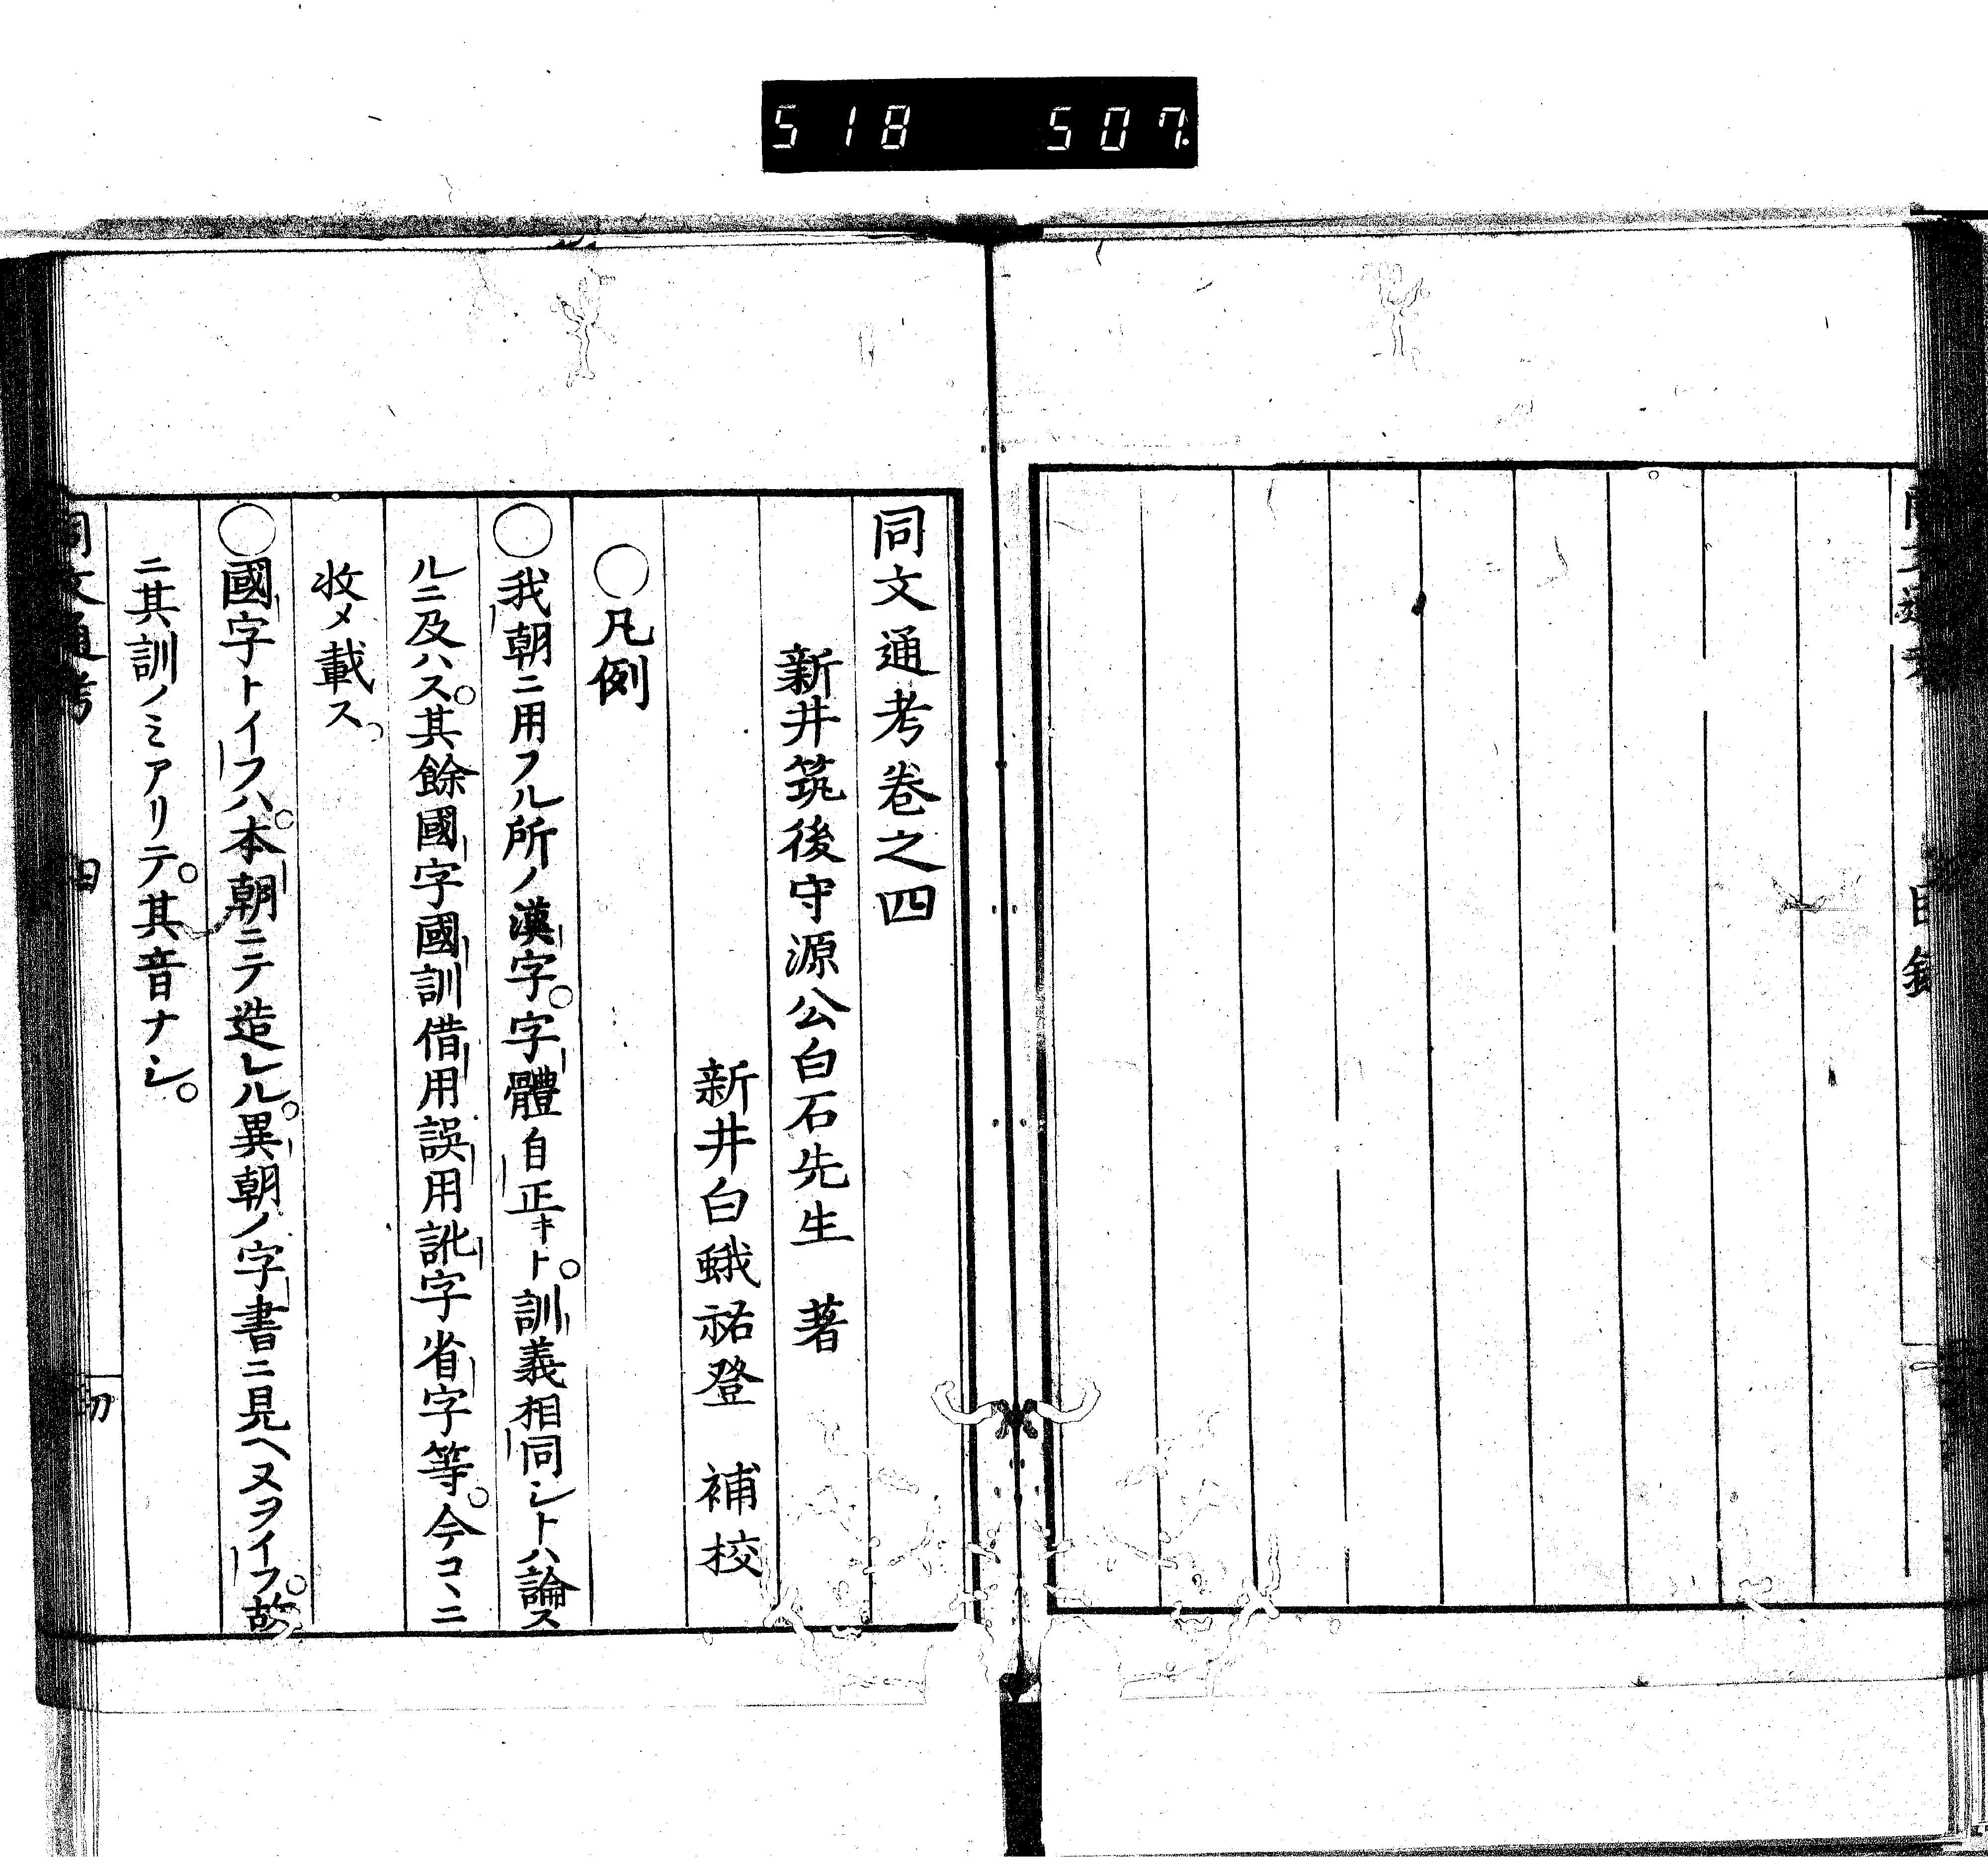 518 507.
同文通考卷之四
新井筑後守源公白石先生 著
新井白蛾祐登 補校
○凡例
○我朝ニ用フル所ノ漢字。字體自正キト。訓義相同シトハ論ス
ルニ及ハス。其餘國字國訓借用誤用訛字省字等。今コヽニ
收メ載ス。
○國字トイフハ。本朝ニテ造レル。異朝ノ字書ニ見ヘヌヲイフ。故
ニ其訓ノミアリテ。其音ナシ。
同文通考 四